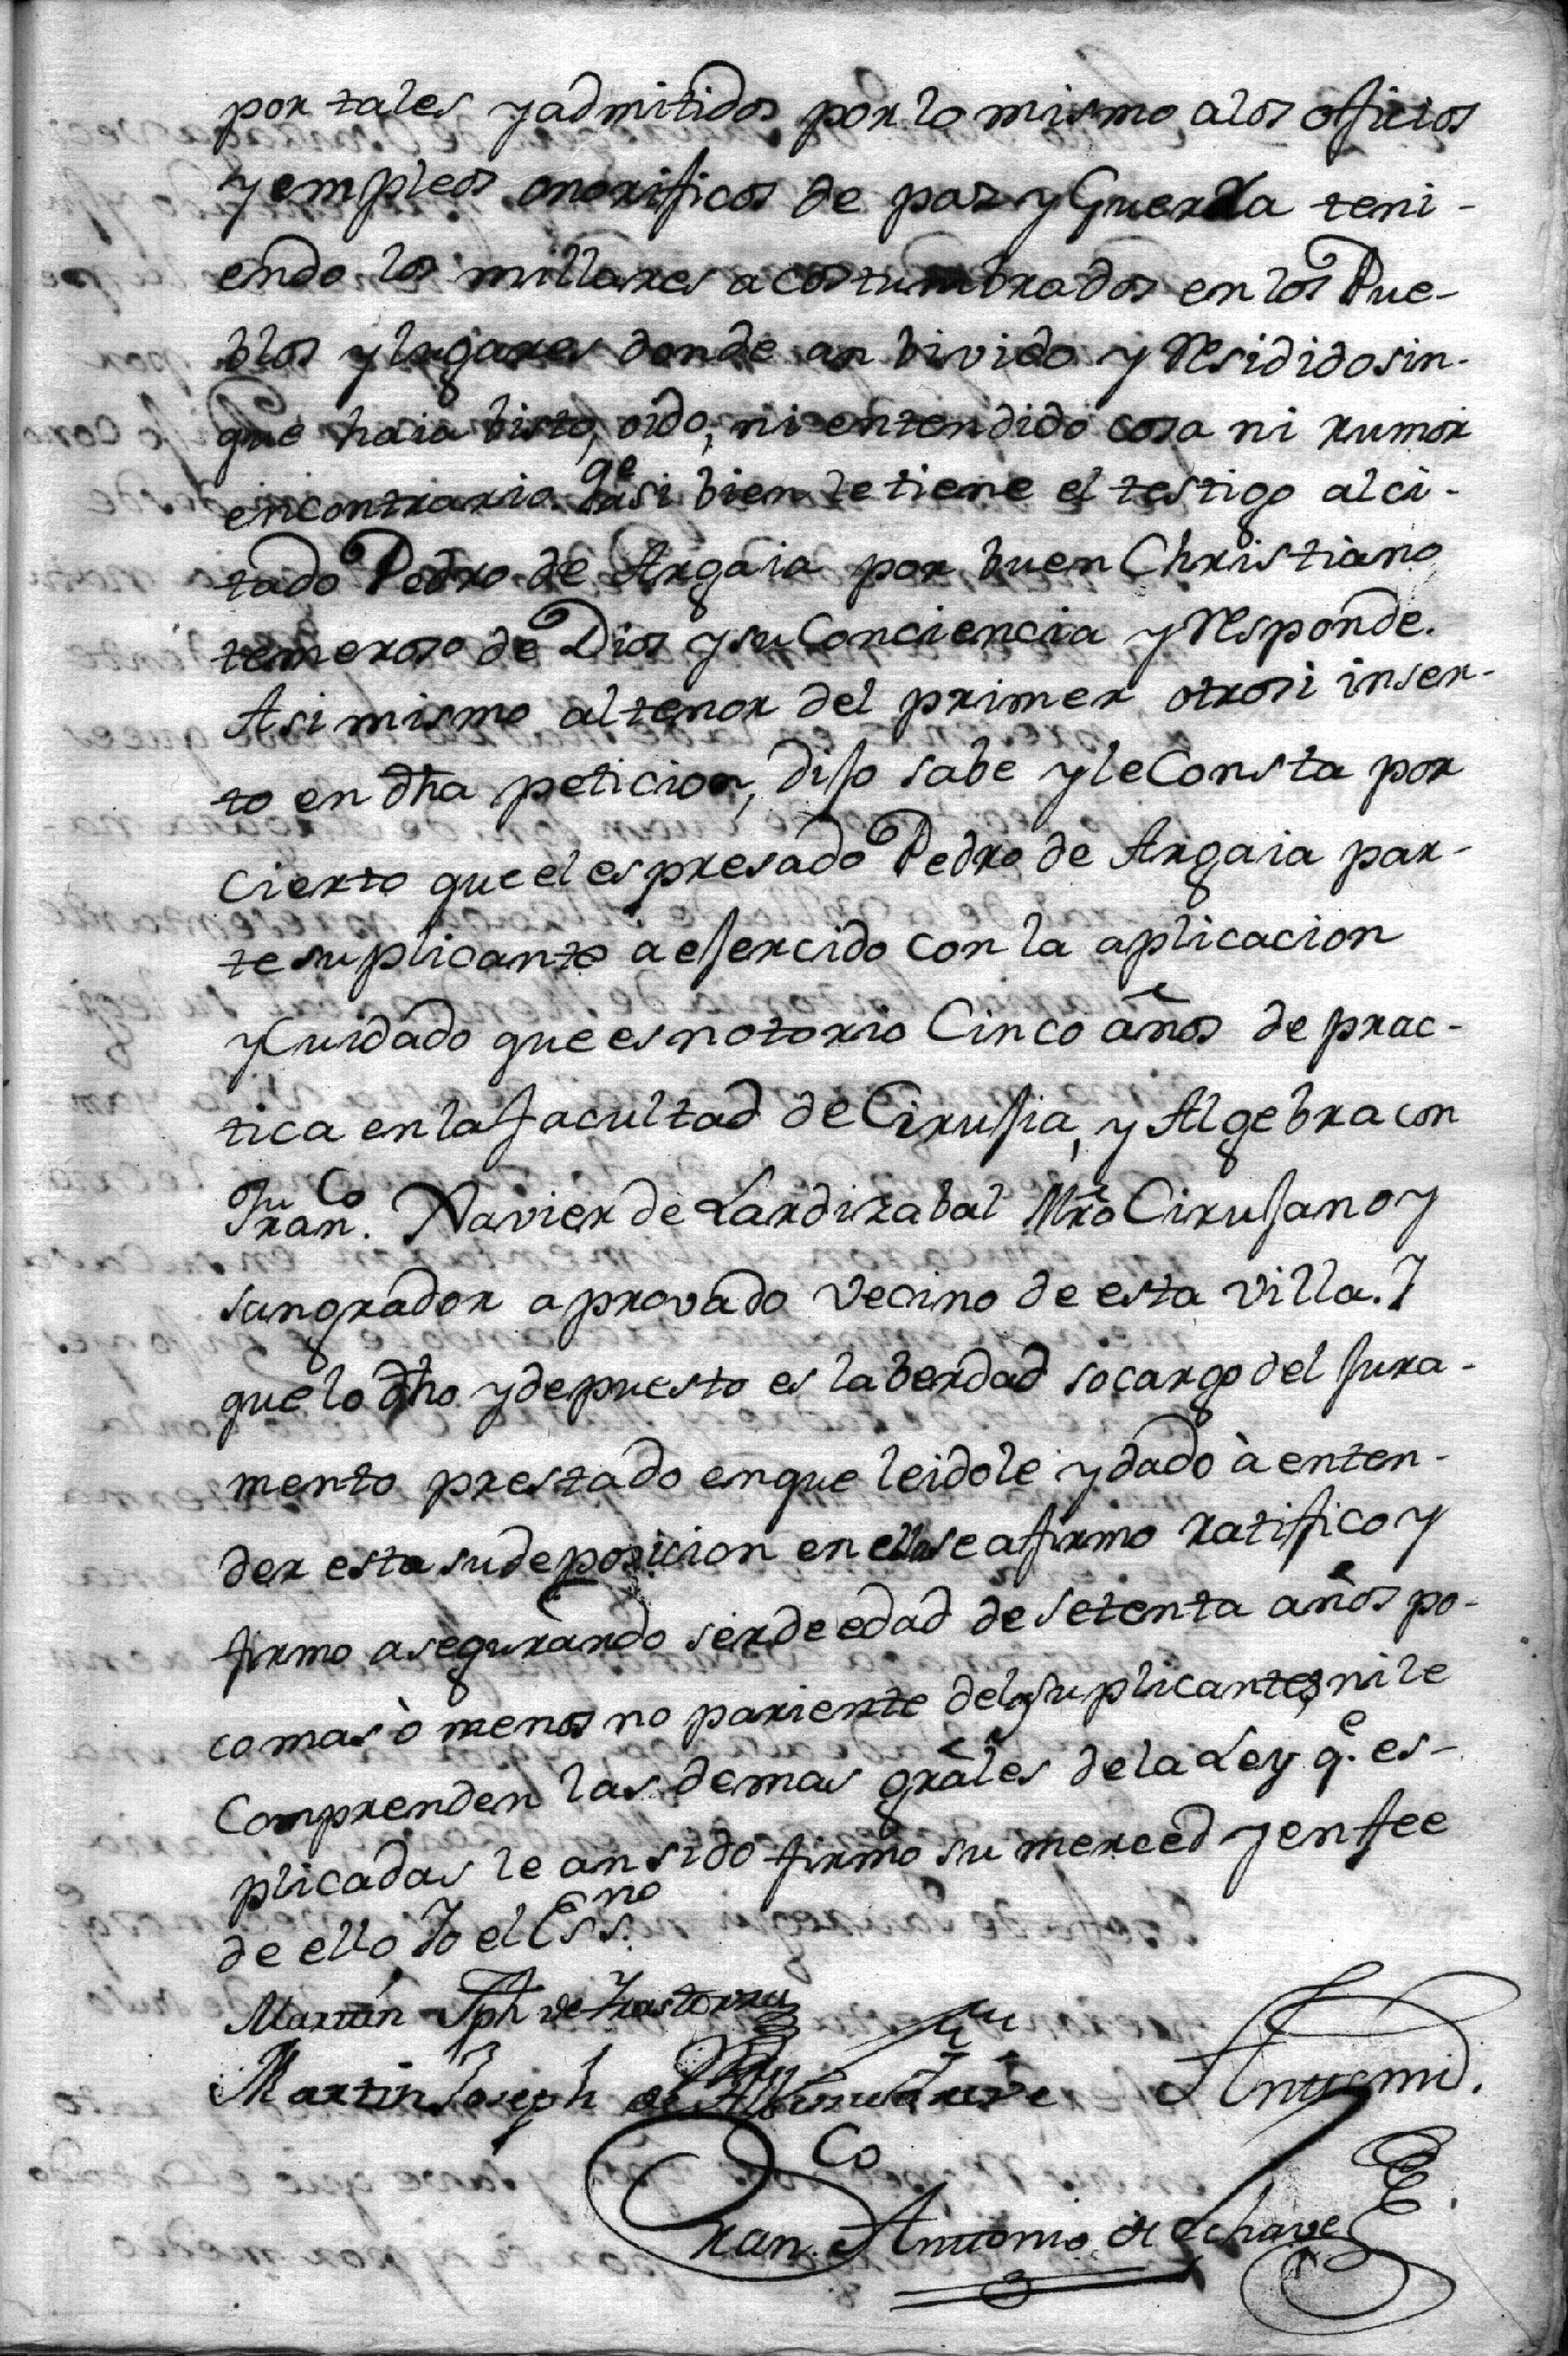 por tales y admitidos por lo mismo a los oficios
y empleos onorificos de paz y Guerra teni-
endo los millares acostumbrados en los Pue-
blos y lugares donde an bivido y residido sin-
que haia bisto, oido, ni entendido cosa ni rumor
encontrario. qe asi bien le tiene el testigo alci-
tado Pedro de Argaia por buen Christiano
temeroso de Dios y su Conciencia y responde.
Asimismo al tenor del primer otrosi inser-
to en dha peticion, dijo sabe y le Consta por
cierto que el espresado Pedro de Argaia par-
te suplicante a ejercido con la aplicacion
y Cuidado que es notorio Cinco años de prac-
tica en la facultad de Cirujia, y Algebra con
Franco. Xavier de Lardizabal Mro Cirujano y
sangrador aprovado vecino de esta villa. I
que lo dho y depuesto es la berdad socargo del jura-
mento prestado en que leidole y dado à enten-
der esta su deposicion en ella se afirmo ratifico y
firmo asegurando ser de edad de setenta años po-
co mas ò menos no pariente de los suplicantes ni le
Comprenden las demas grâles de la Ley q.e es-
plicadas le an sido firmo su merced y en fee
de ello Io el Essno.
Martin Jph de
Martin Joseph de Antemi.
Franco. Antonio de Echave